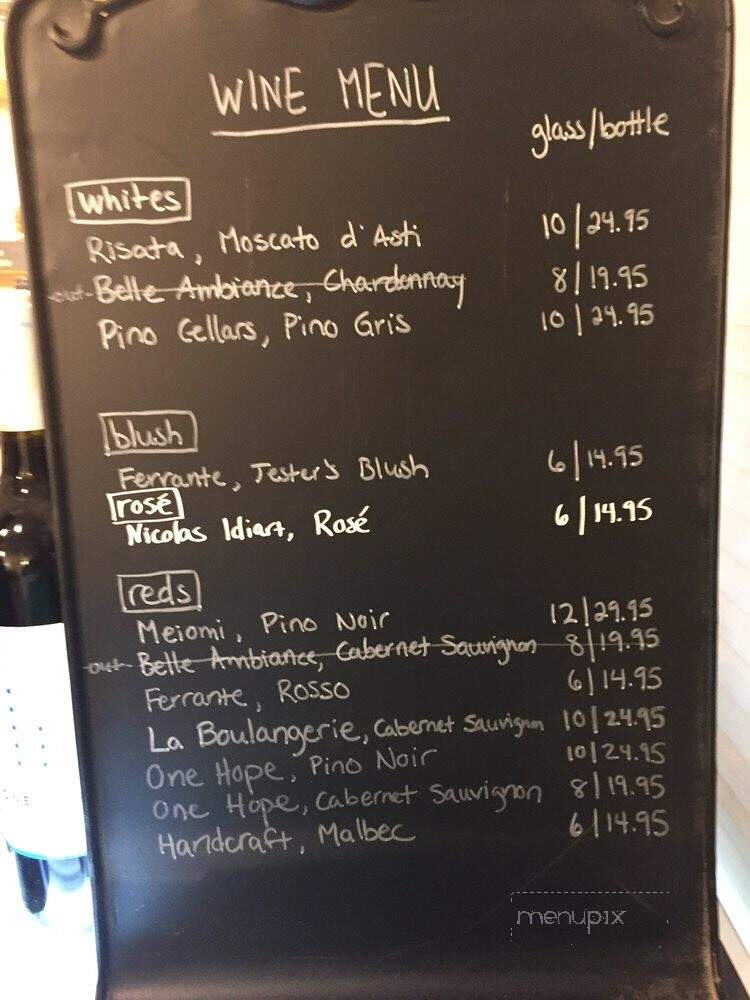 WINE MENU
glass/bottle
whites
Risata, Moscato d'Asti 10/24.95
-out- Belle Ambiance, Chardonnay 8/19.95
Pino Cellars, Pino Gris 10/24.95
blush
Ferrante, Jester's Blush 6/14.95
rosé
Nicolas Idiart, Rosé 6/14.95
reds
Meiomi, Pino Noir 12/29.95
-out- Belle Ambiance, Cabernet Sauvignon 8/19.95
Ferrante, Rosso 6/14.95
La Boulangerie, Cabernet Sauvignon 10/24.95
One Hope, Pino Noir 10/24.95
One Hope, Cabernet Sauvignon 8/19.95
Handcraft, Malbec 6/14.95
menupix